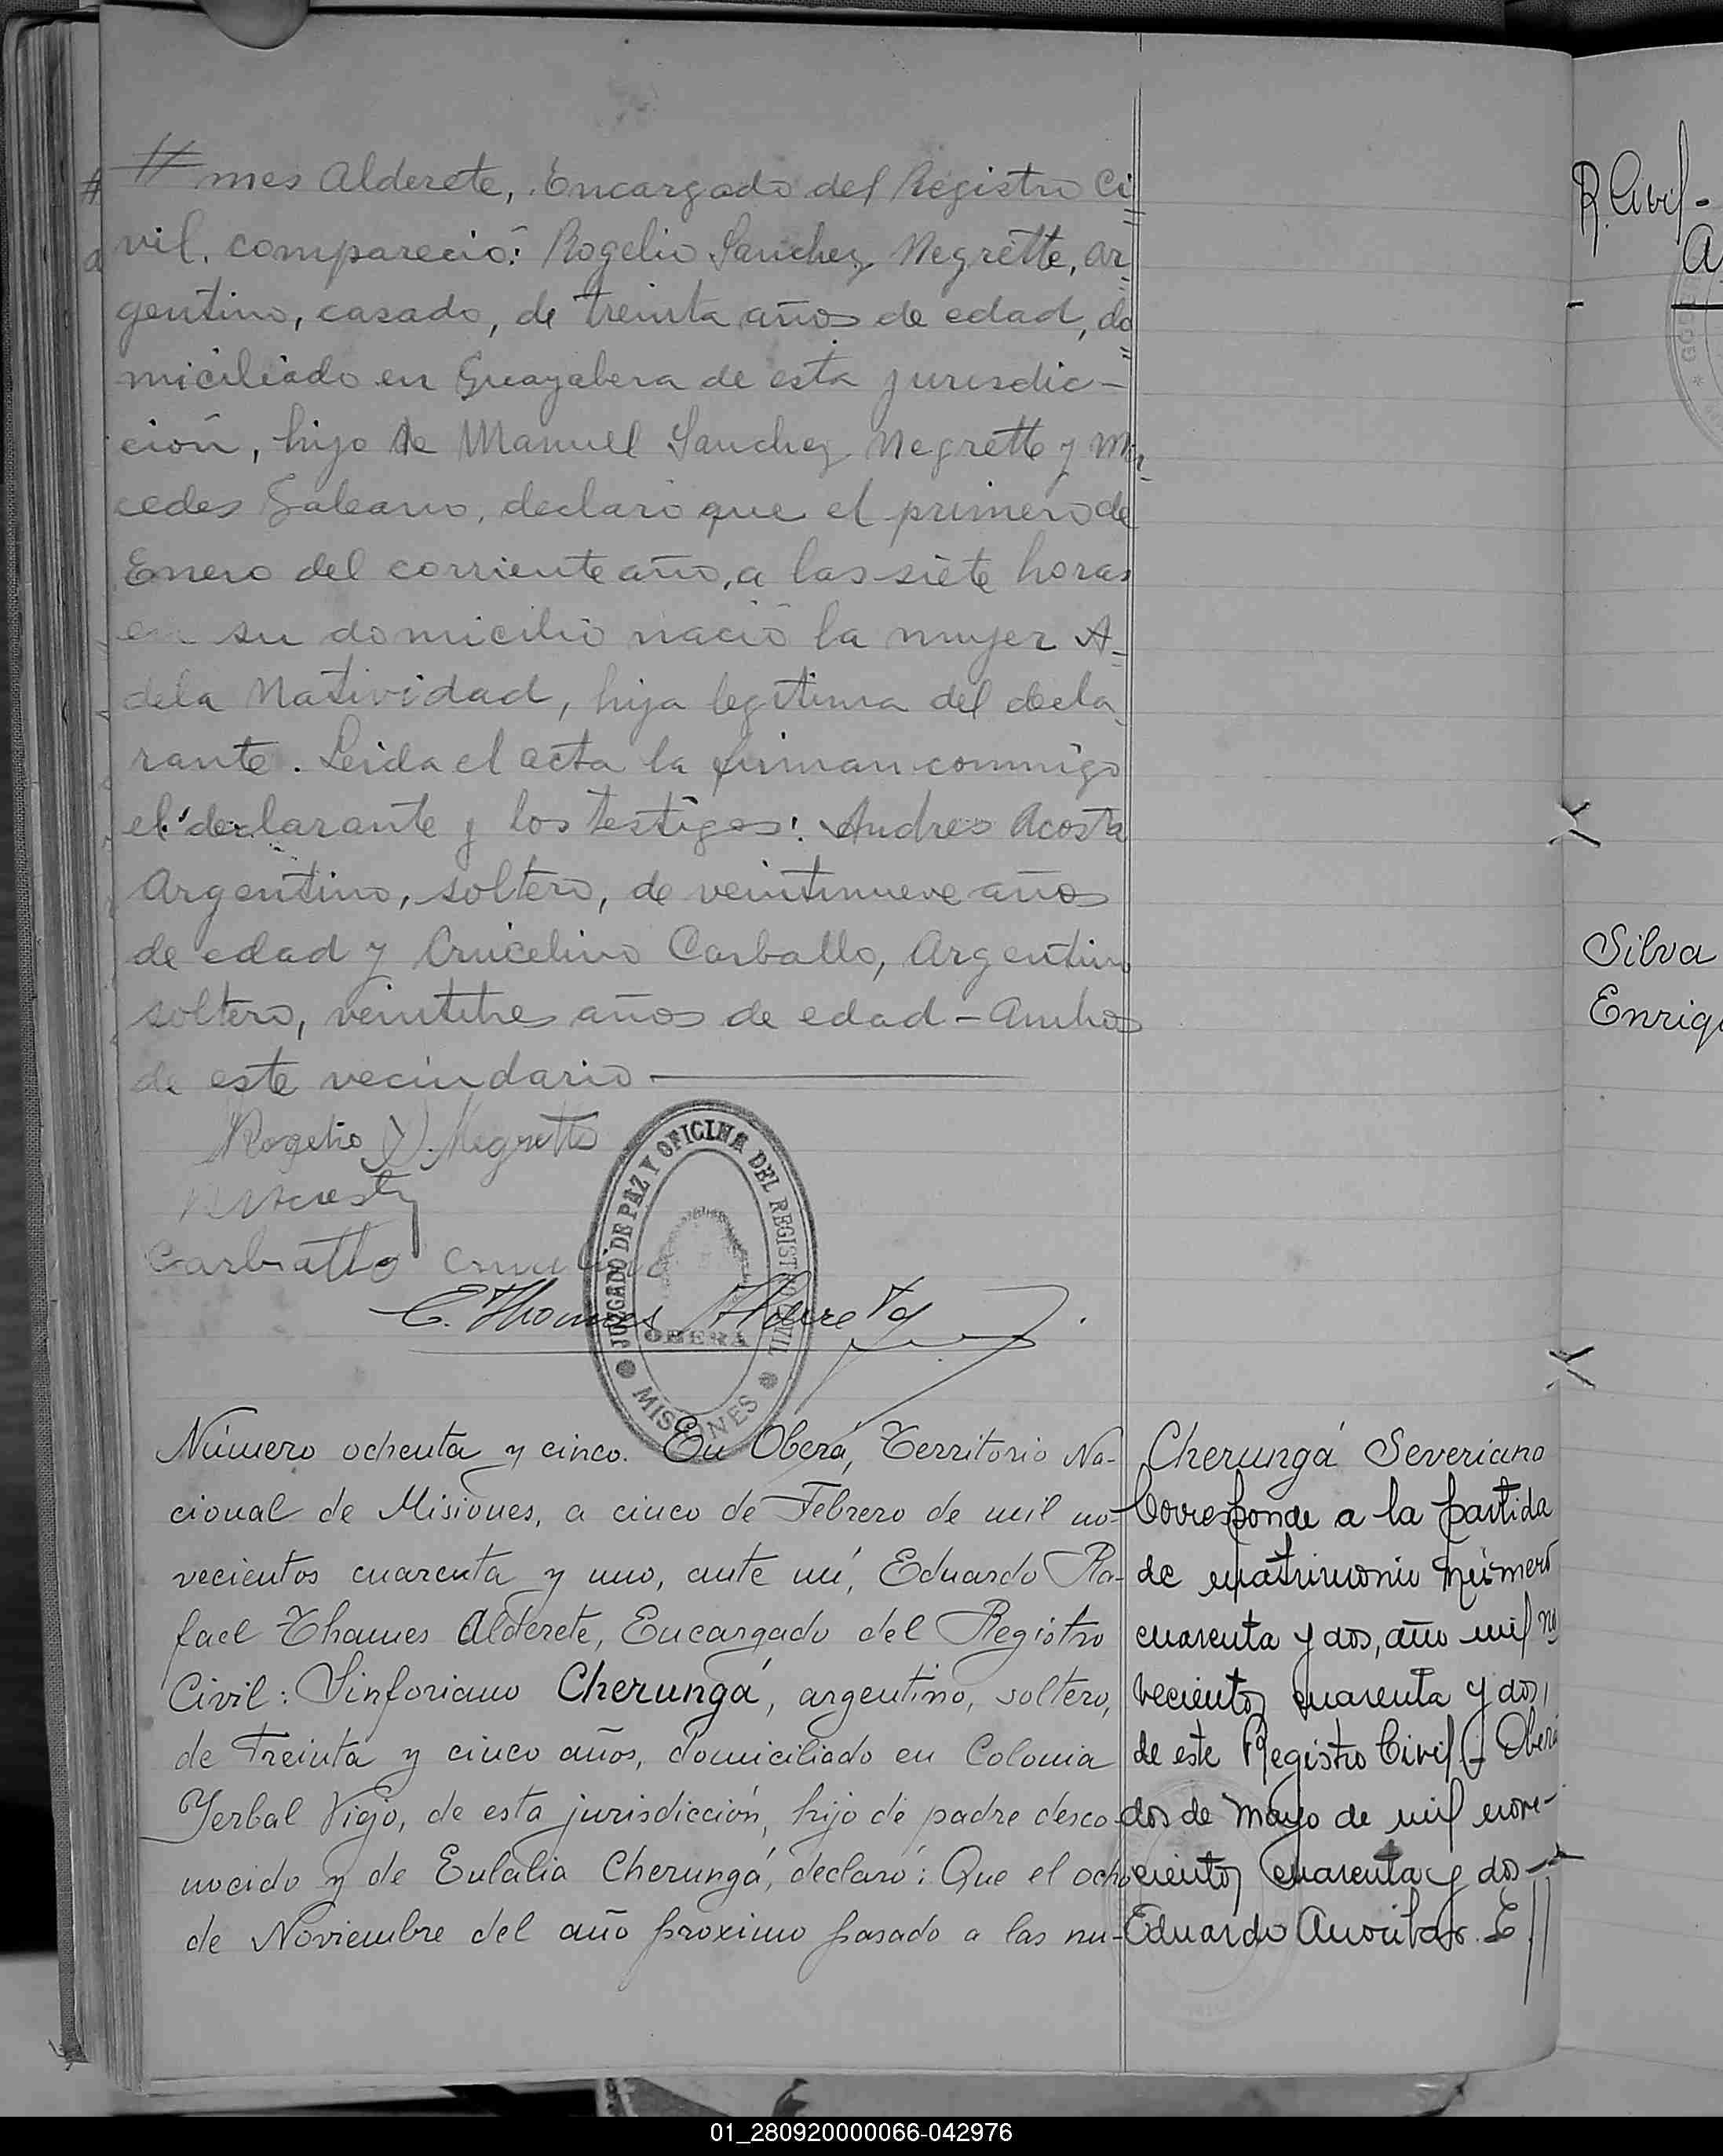 mes Alderete, Encargado del Registro Ci
vil, compareció: Rogelio Sanchez Negrette, ar
gentino, casado, de treinta años de edad, do
miciliado en Guayabera de esta jurisdic-
ción, hijo de Manuel Sanchez Negrette y Mer
cedes Galeano, declaró que el primero de
Enero del corriente año, a las siete horas
en su domicilio nació la mujer A-
dela Natividad, hija legitima del decla
rante. Leida el acta la firman conmigo
el declarante y los testigos: Andres Acosta
Argentino, soltero, de veintinueve años
de edad y Crucelino Carballo, Argentino
soltero, veintitres años de edad - Ambos
de este vecindario
Rogelio S. Negrette
Carballo
JUZGADO DE PAZ Y OFICINA DEL REGISTRO CIVIL
OBERÁ
MISIONES
E. Thames Alderete
Número ochenta y cinco. En Oberá, Territorio Na-
cional de Misiones, a cinco de Febrero de mil no-
vecientos cuarenta y uno, ante mí, Eduardo Ra-
fael Thames Alderete, Encargado del Registro
Civil: Sinforiano Cherungá, argentino, soltero,
de treinta y cinco años, domiciliado en Colonia
Yerbal Viejo, de esta jurisdicción, hijo de padre desco-
nocido y de Eulalia Cherungá, declaró: Que el ocho
de Noviembre del año proximo pasado a las nu-
Cherungá Severiano
Corresponde a la partida
de matrimonio número
cuarenta y dos, año mil no
vecientos cuarenta y dos,
de este Registro Civil - Oberá
dos de mayo de mil nove-
cientos cuarenta y dos -
Eduardo
R. Civil -
Silva
Enriq
01_280920000066-042976